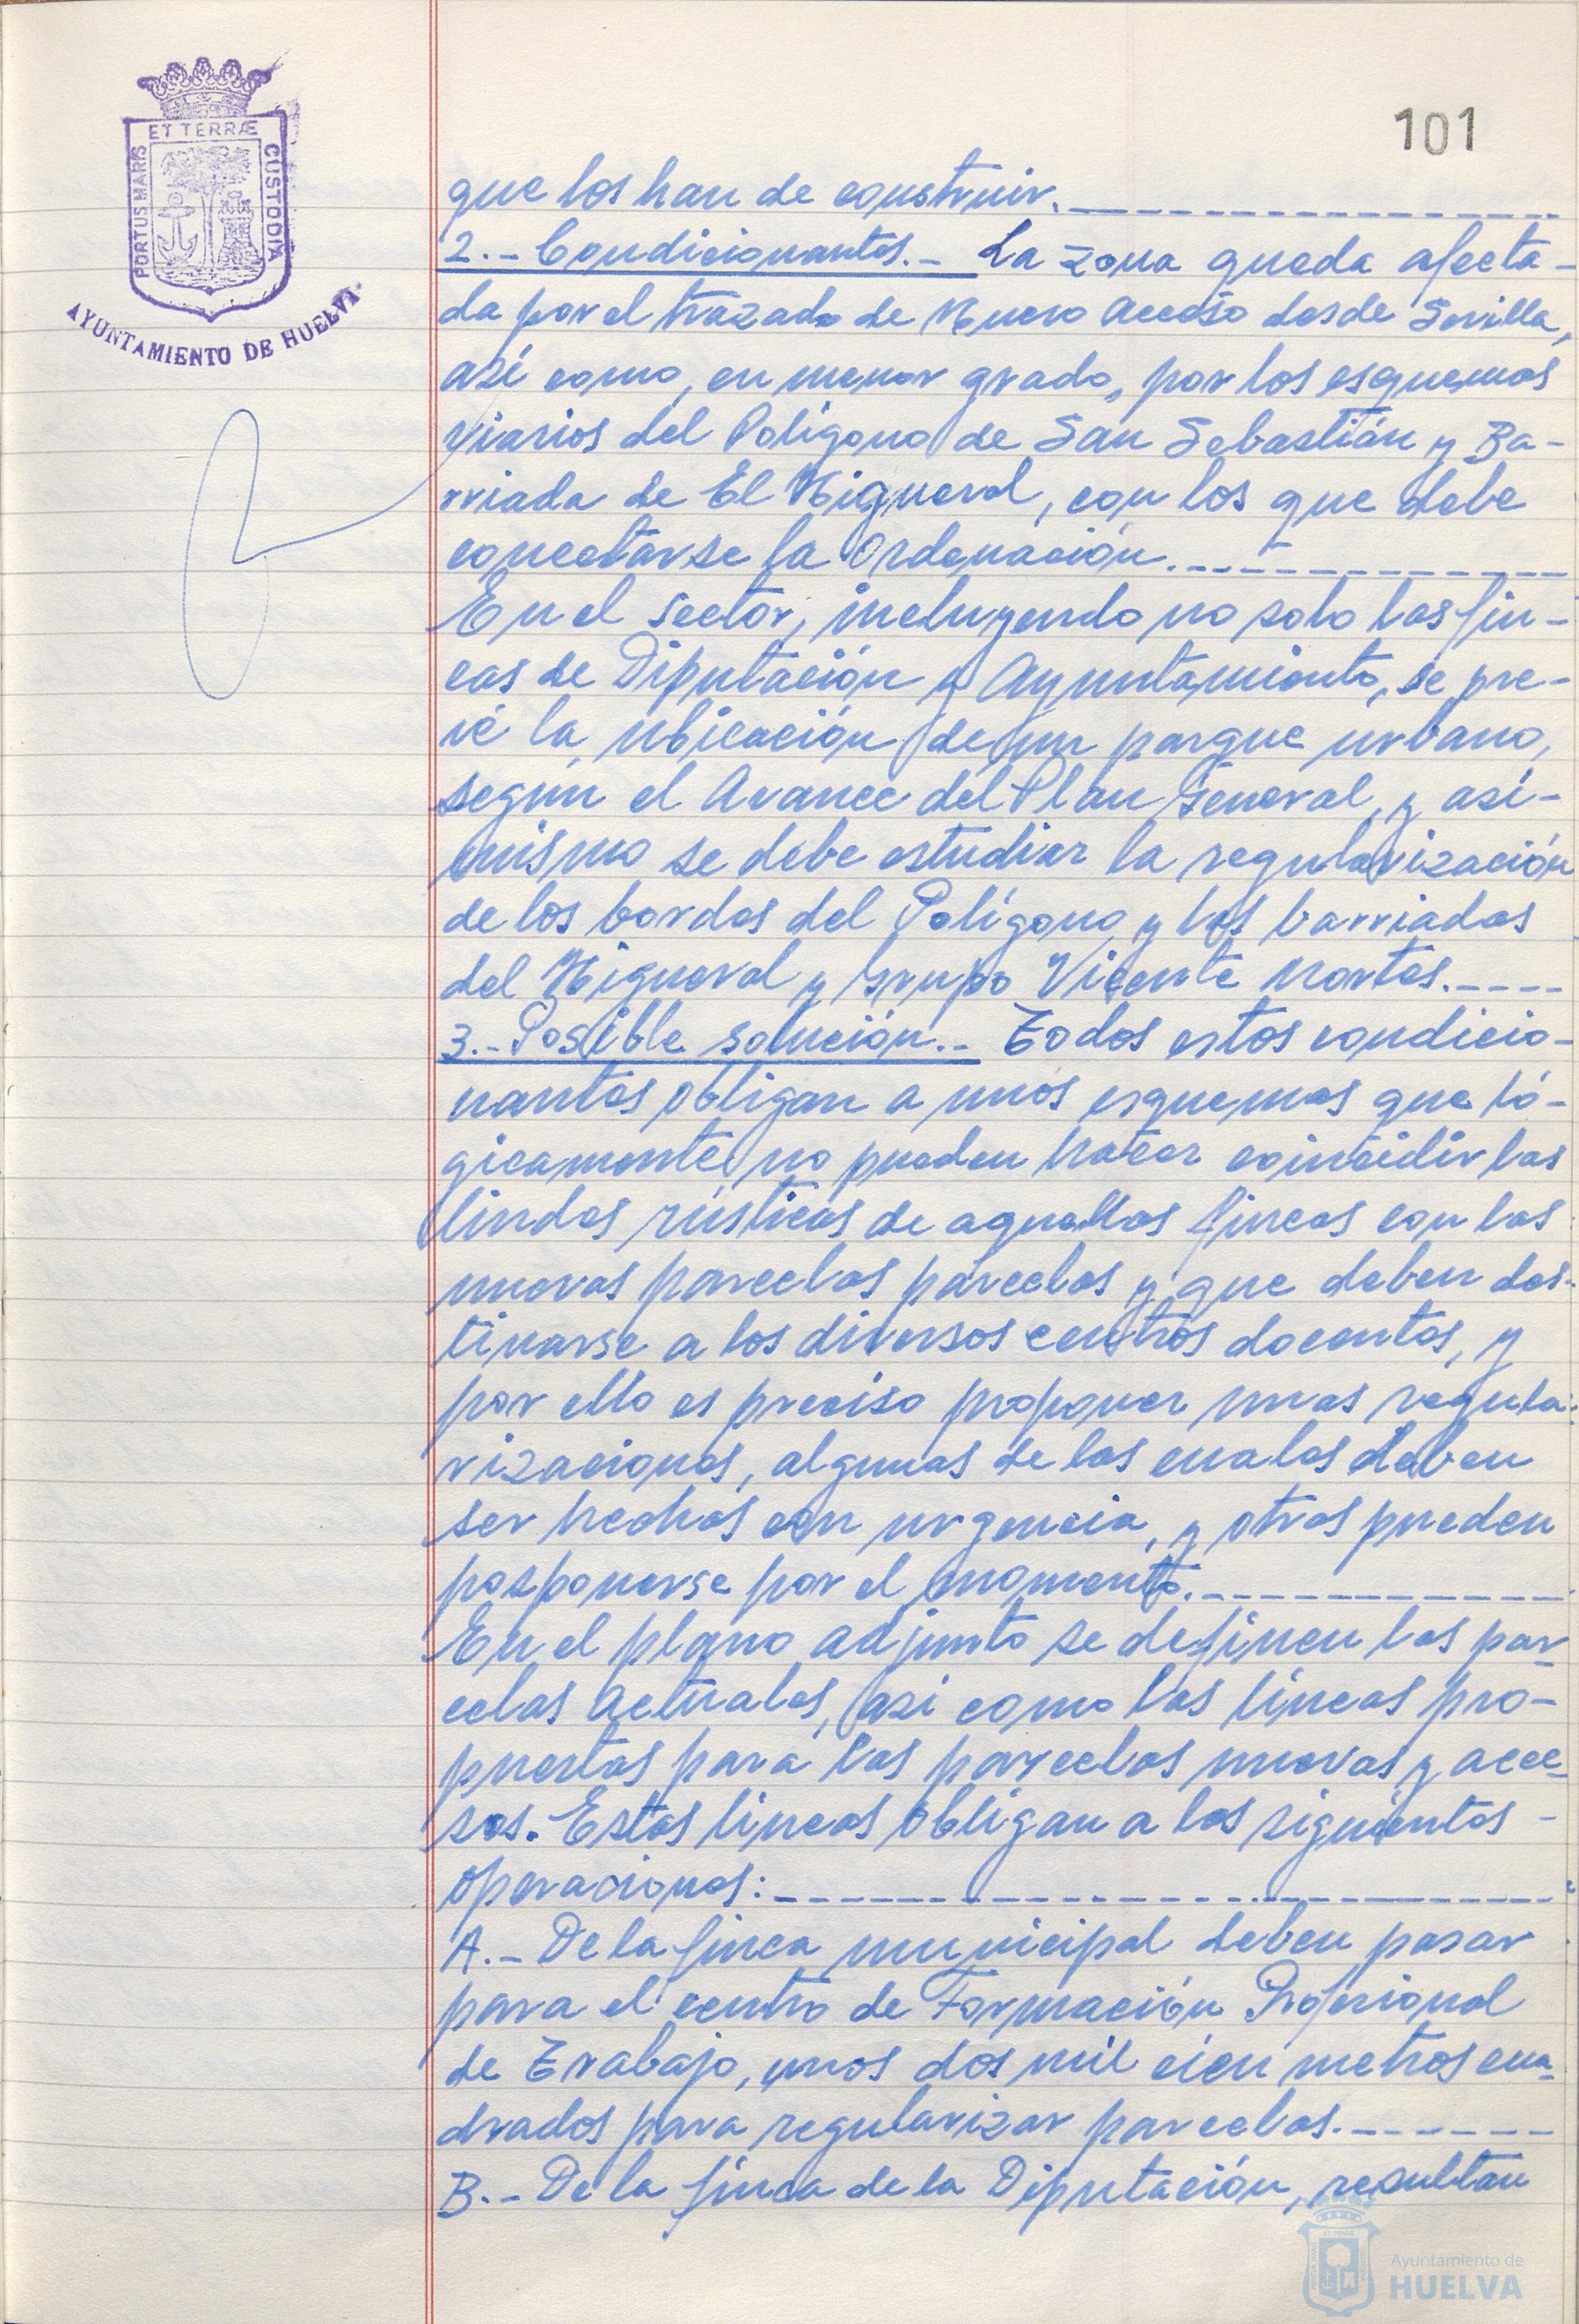 101
ET TERRÆ
PORTUS MARIS
CUSTODIA
AYUNTAMIENTO DE HUELVA
que los han de construir.
2.- Condicionantes.- La zona queda afecta-
da por el trazado de Nuevo acceso desde Sevilla,
así como, en menor grado, por los esquemas
viarios del Polígono de San Sebastián y Ba-
rriada de El Higueral, con los que debe
conectarse la Ordenación.
En el sector, incluyendo no solo las fin-
cas de Diputación y Ayuntamiento, se pre-
vé la ubicación de un parque urbano,
según el Avance del Plan General, y así-
mismo se debe estudiar la regularización
de los bordes del Polígono y las barriadas
del Higueral y Grupo Vicente Mortes.
3.- Posible solución.- Todos estos condicio-
nantes obligan a unos esquemas que ló-
gicamente no pueden hacer coincidir las
lindes rústicas de aquellas fincas con las
nuevas parcelas parcelas y que deben des-
tinarse a los diversos centros docentes, y
por ello es preciso proponer unas regula-
rizaciones, algunas de las cuales deben
ser hechas con urgencia, y otras pueden
posponerse por el momento.
En el plano adjunto se definen las par
celas actuales, así como las líneas pro-
puestas para las parcelas nuevas y acce-
sos. Estas líneas obligan a las siguientes -
operaciones:
A.- De la finca municipal deben pasar
para el centro de Formación Profesional
de Trabajo, unos dos mil cien metros cua-
drados para regularizar parcelas.
B.- De la finca de la Diputación, resultan
Ayuntamiento de
HUELVA